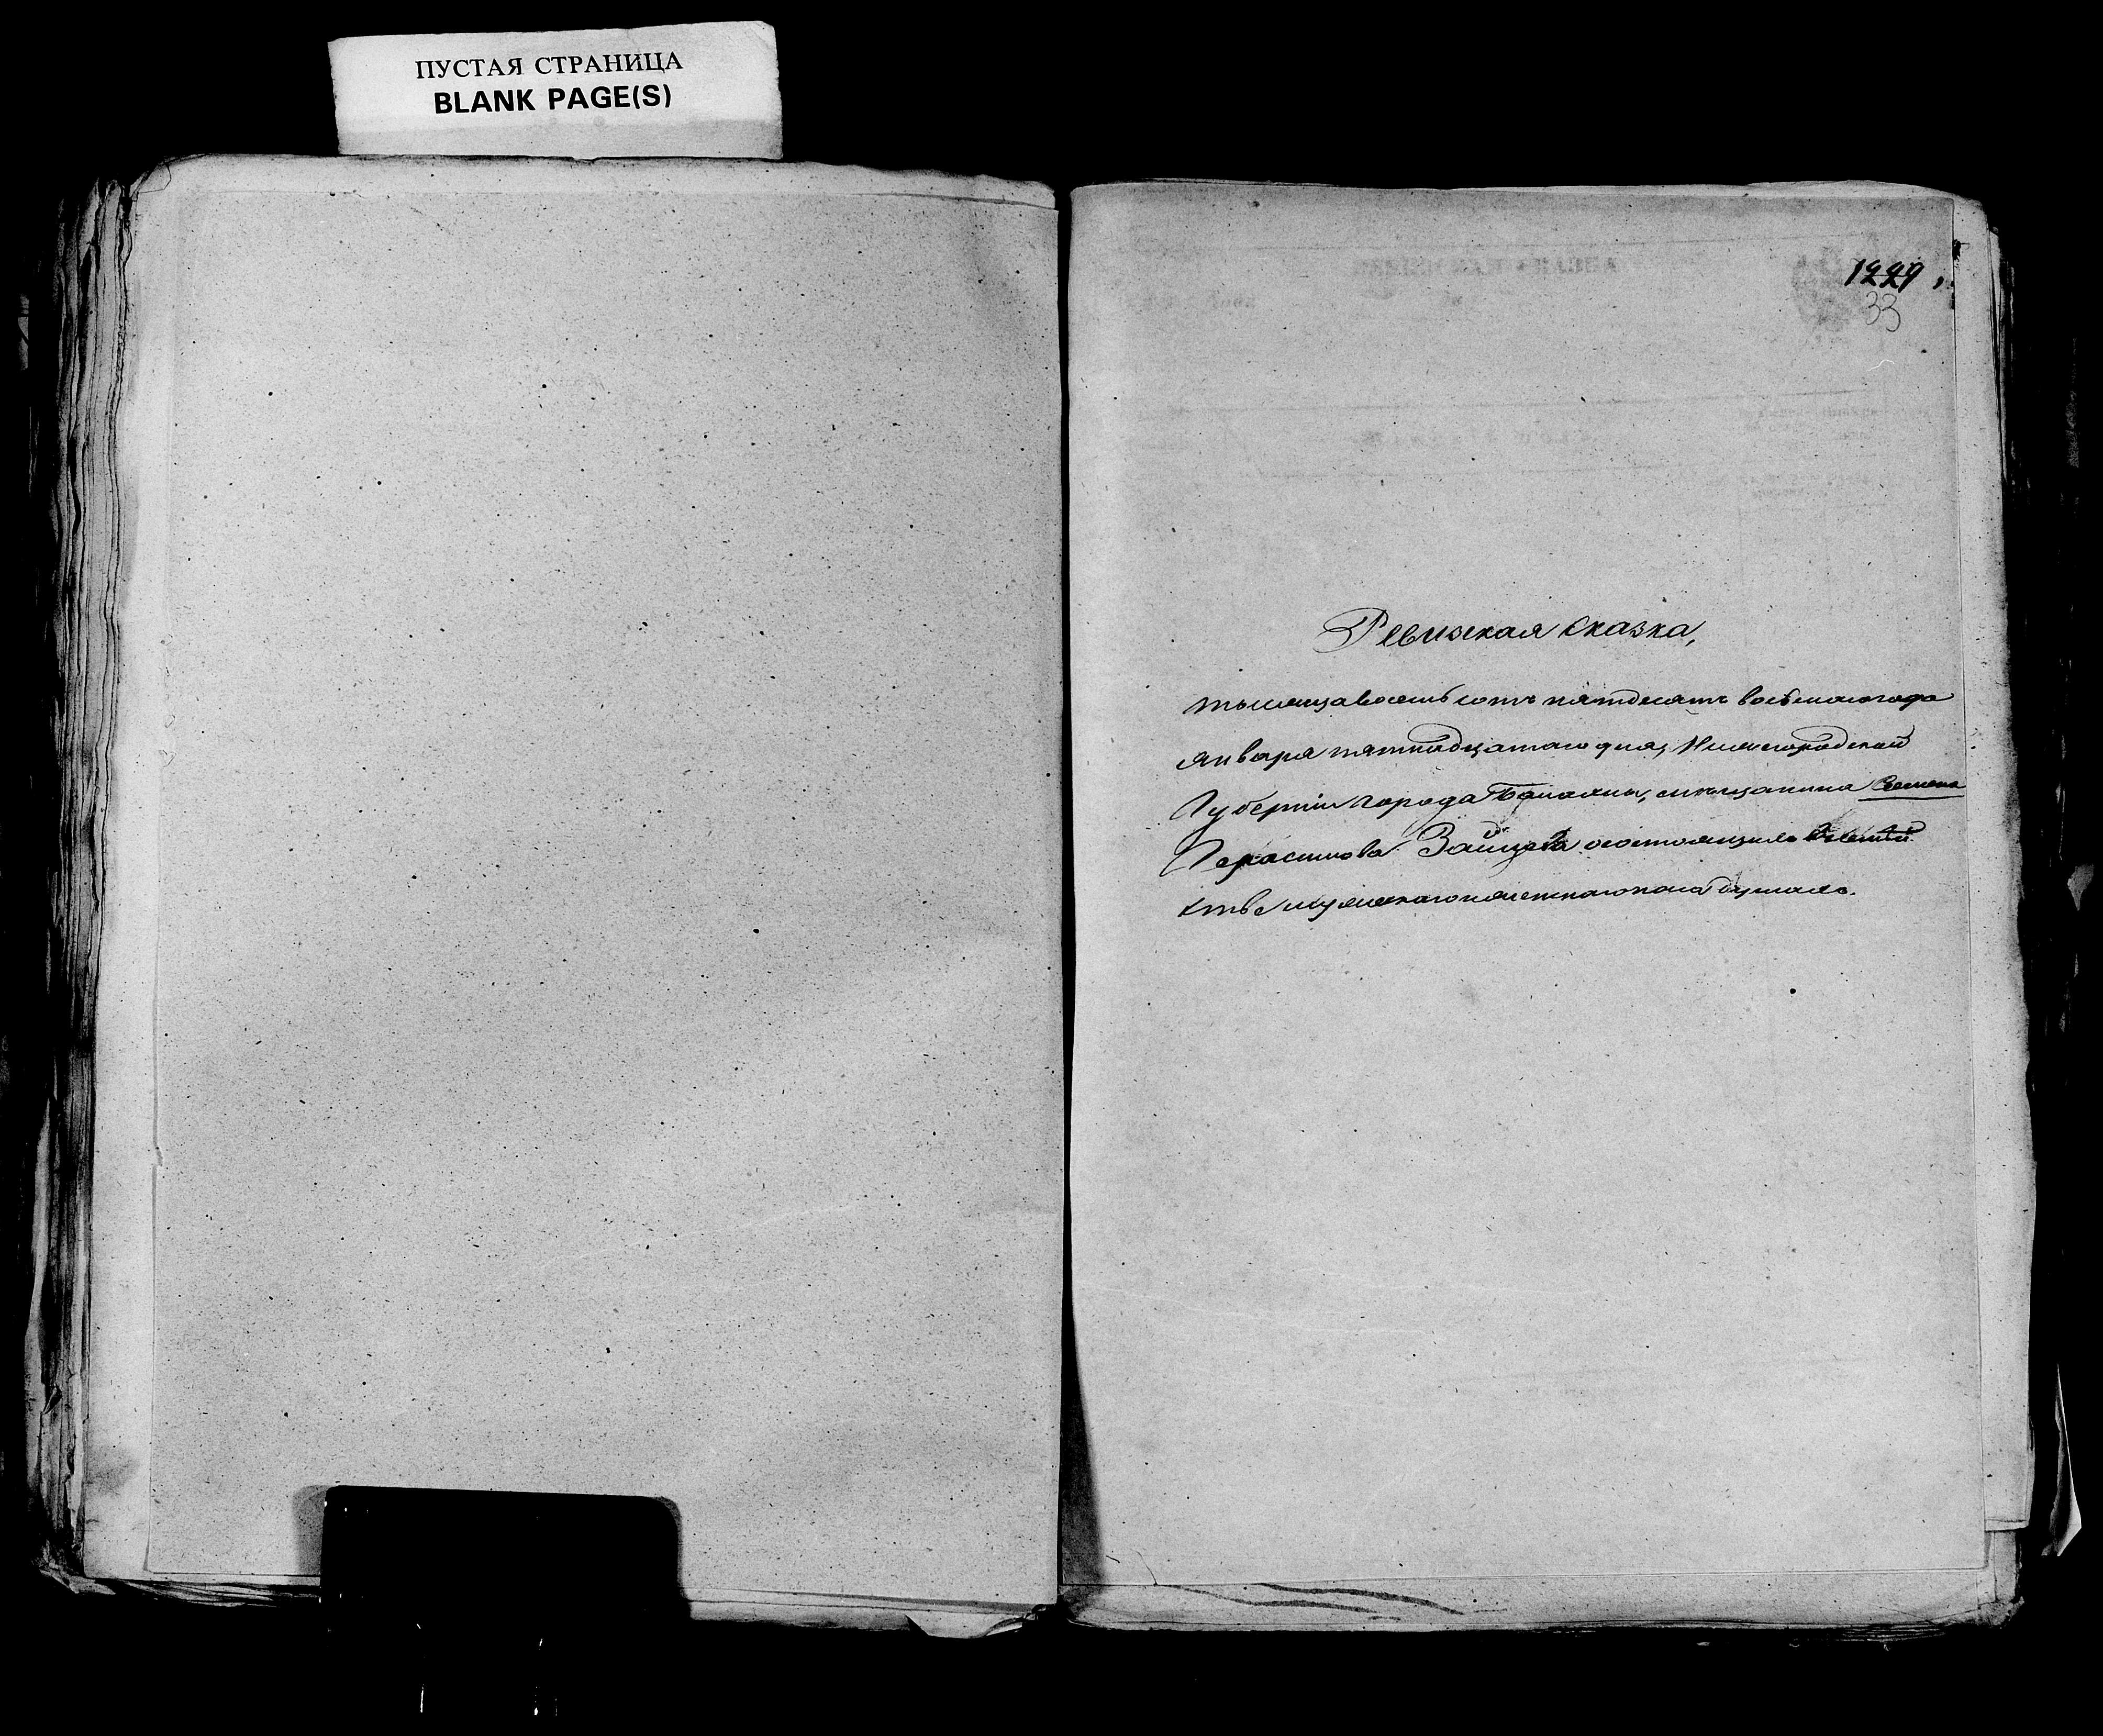 ПУСТАЯ СТРАНИЦА
BLANK PAGE(S)
1229.
33
Ревизская сказка,
тысяща восемь сотъ пятдесятъ восьмаго года
Января пятнадцатаго дня, Нижегородской
Губерніи города Балахны, мѣщанина Семена
Герасимова Зайцева состоящихъ
мужескаго и женскаго пола душахъ.